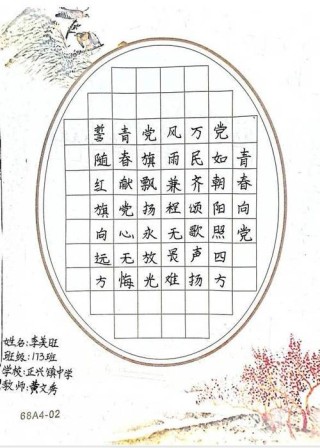 青春向党
党如朝阳照四方
万民齐颂歌声扬
风雨兼程无畏难
党旗飘扬永放光
青春献党心无悔
誓随红旗向远方
姓名:李美旺
班级:173班
学校:正兴镇中学
教师:黄文秀
68A4-02